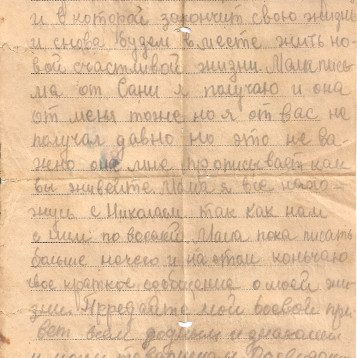 и в которой закончит свою жизнь
и снова будем вместе жить но
вой счастливой жизни. Мама пись
ма от Сани я получаю и она
от меня тоже но я от вас не
получал давно но это не ва
жно она мне прописывает как
вы живёте Мама я все нахо-
жусь с Николаем так как нам
с ним по восемь Мама пока писать
больше нечего и на этом кончаю
свое краткое сообщение о моей жи
зни. Передайте мой боевой при
вет всем родным и знакомым
и моим товарищам